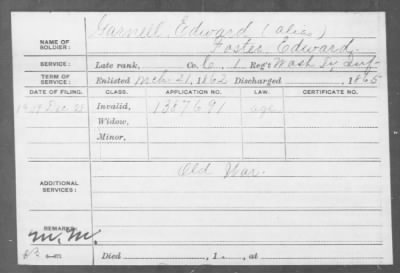 NAME OF SOLDIER: Garnell, Edward (alias)
Foster, Edward.
SERVICE: Late rank, Co. C, 1 Reg't Wash Ty Inf.
TERM OF SERVICE: Enlisted Mch. 21, 1862 Discharged , 1865
DATE OF FILING. CLASS. APPLICATION NO. LAW. CERTIFICATE NO.
Dec Invalid, 1387691 age
Widow,
Minor,
ADDITIONAL SERVICES: Old War.
REMARKS: M.M.
Died , 1 , at